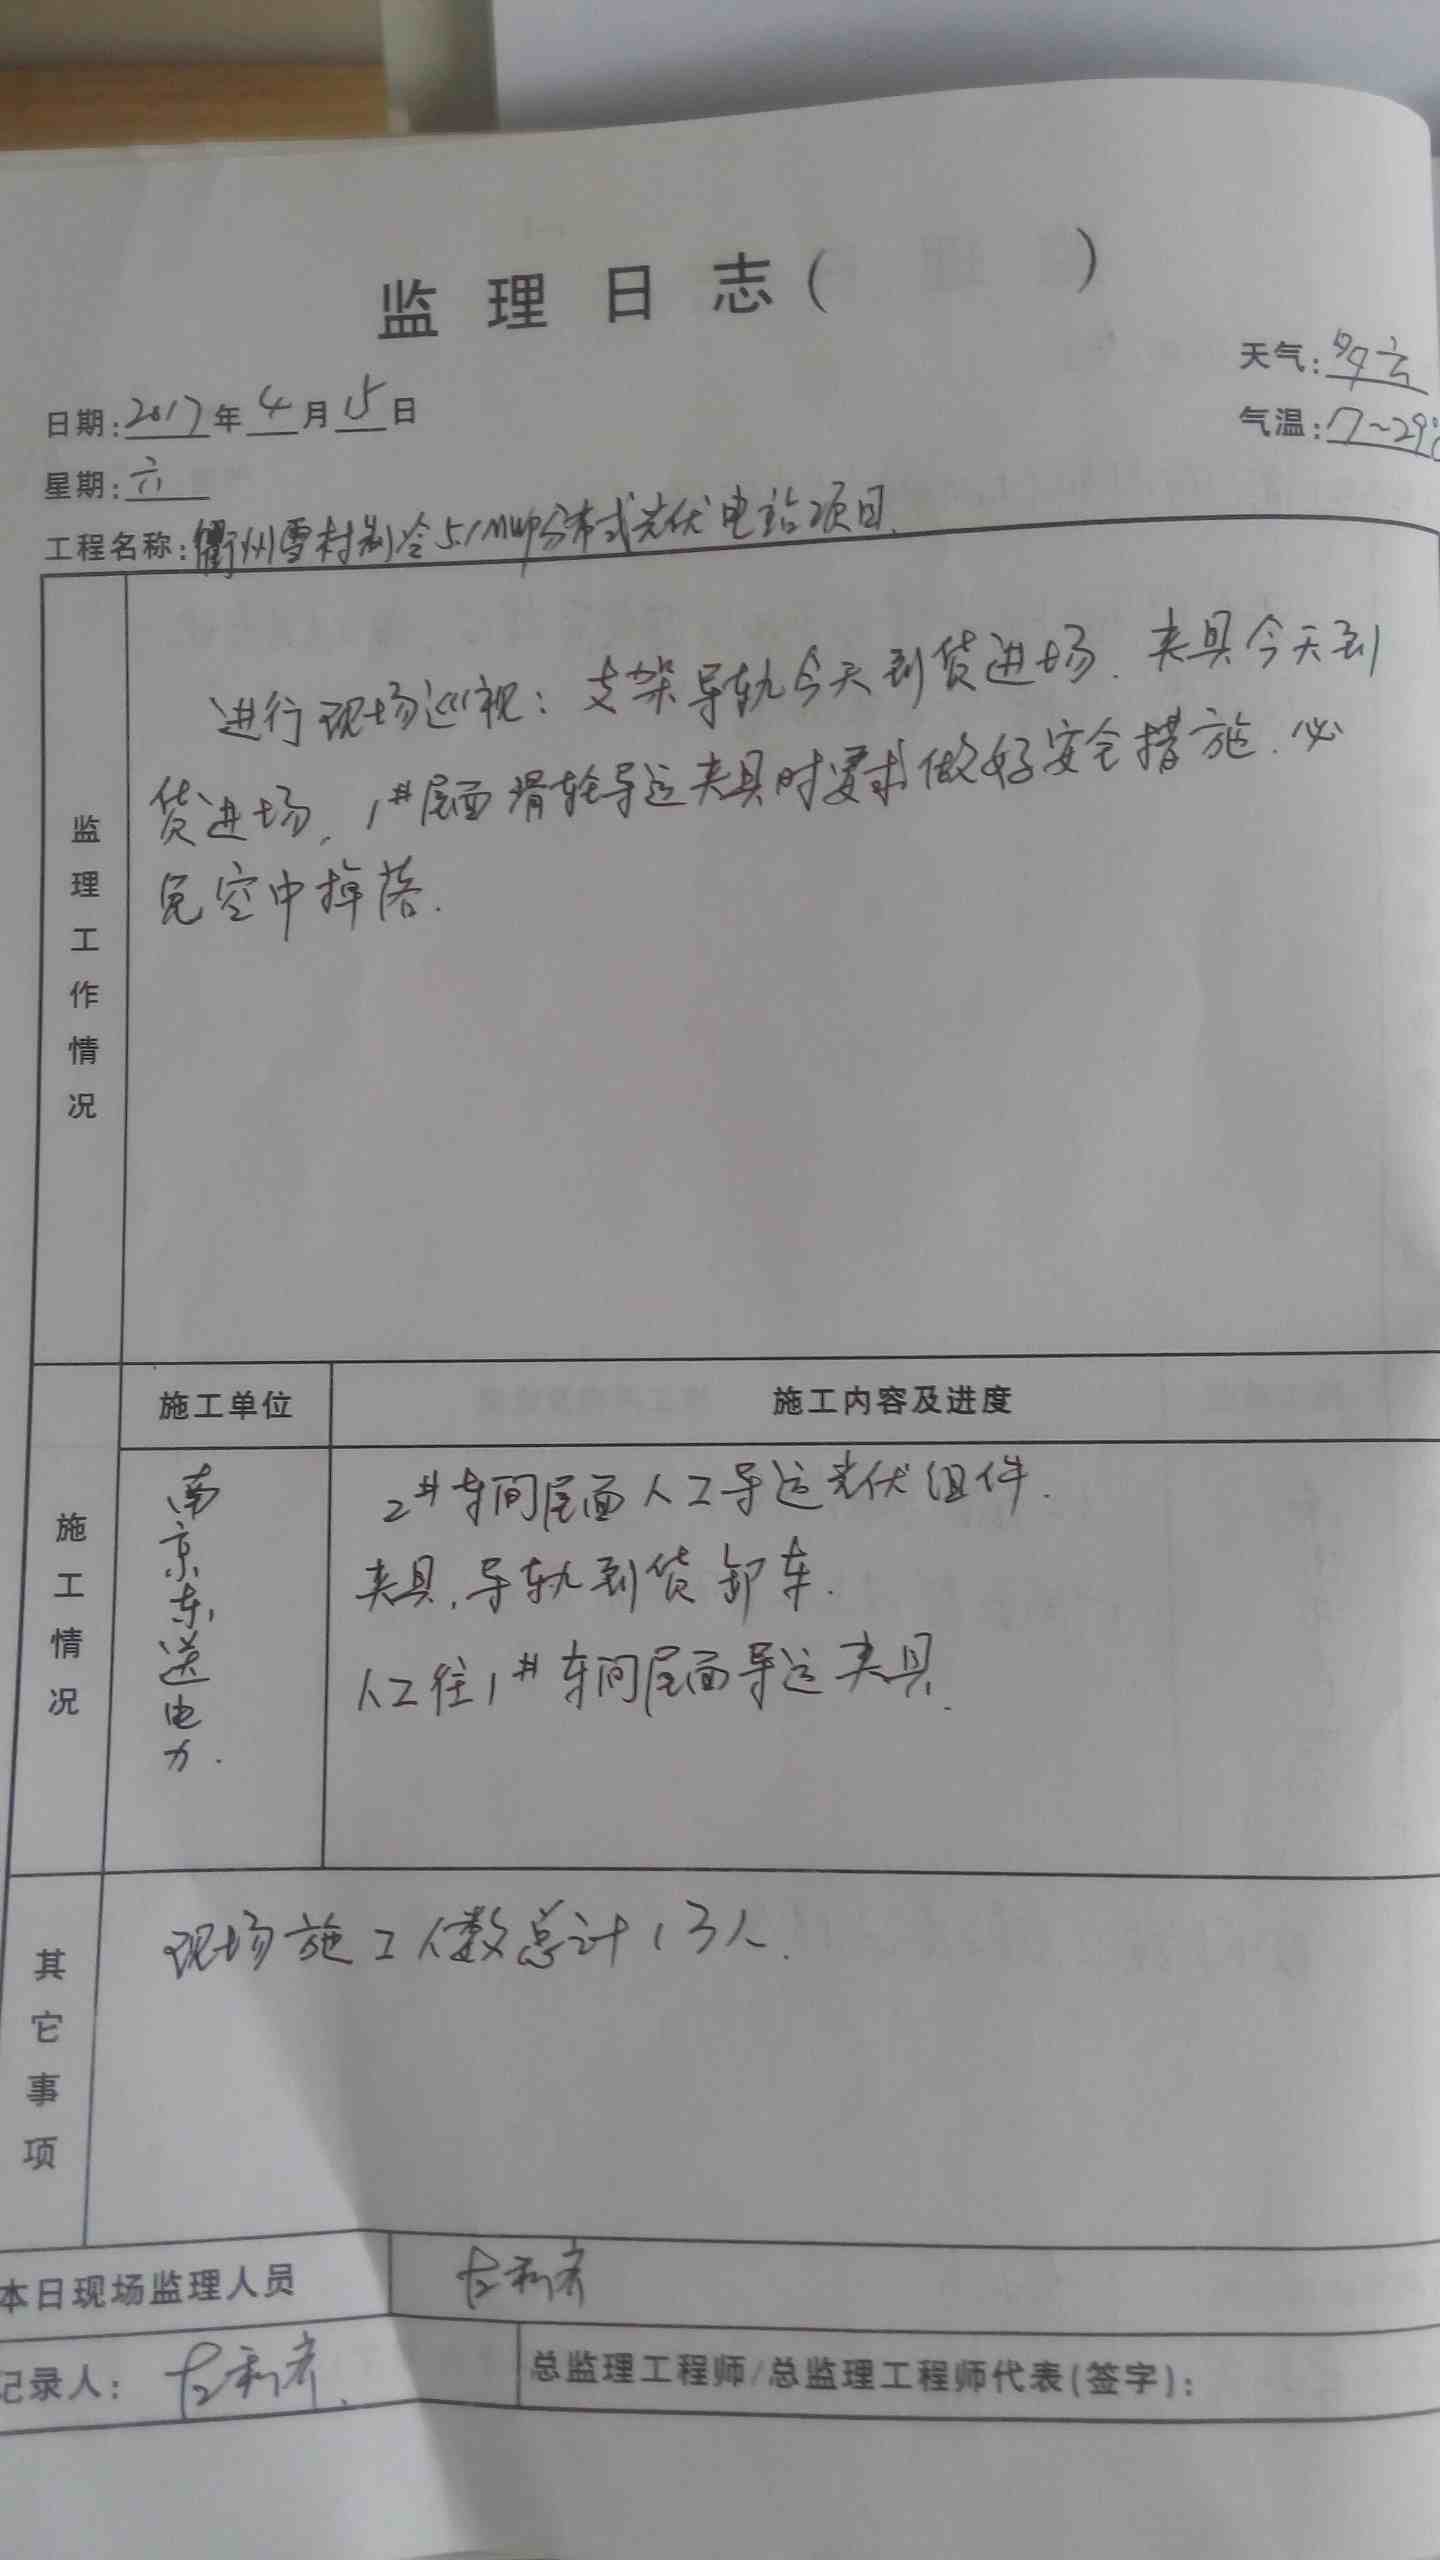 监理日志( )
天气:多云
日期:2017年4月15日
气温:17~29℃
星期:六
工程名称:衢州雪村制冷5.1MWp分布式光伏电站项目.
监理工作情况
进行现场巡视:支架导轨今天到货进场.夹具今天到
货进场,1#屋面滑轮导运夹具时要求做好安全措施.以
免空中掉落.
施工单位 施工内容及进度
施工情况
南京东送电力.
2#车间屋面人工导运光伏组件.
夹具,导轨到货卸车.
人工往1#车间屋面导运夹具.
其它事项
现场施工人数总计13人.
本日现场监理人员
记录人:
总监理工程师/总监理工程师代表(签字):